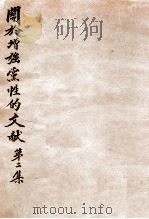 關於增強黨性的文献
第二集